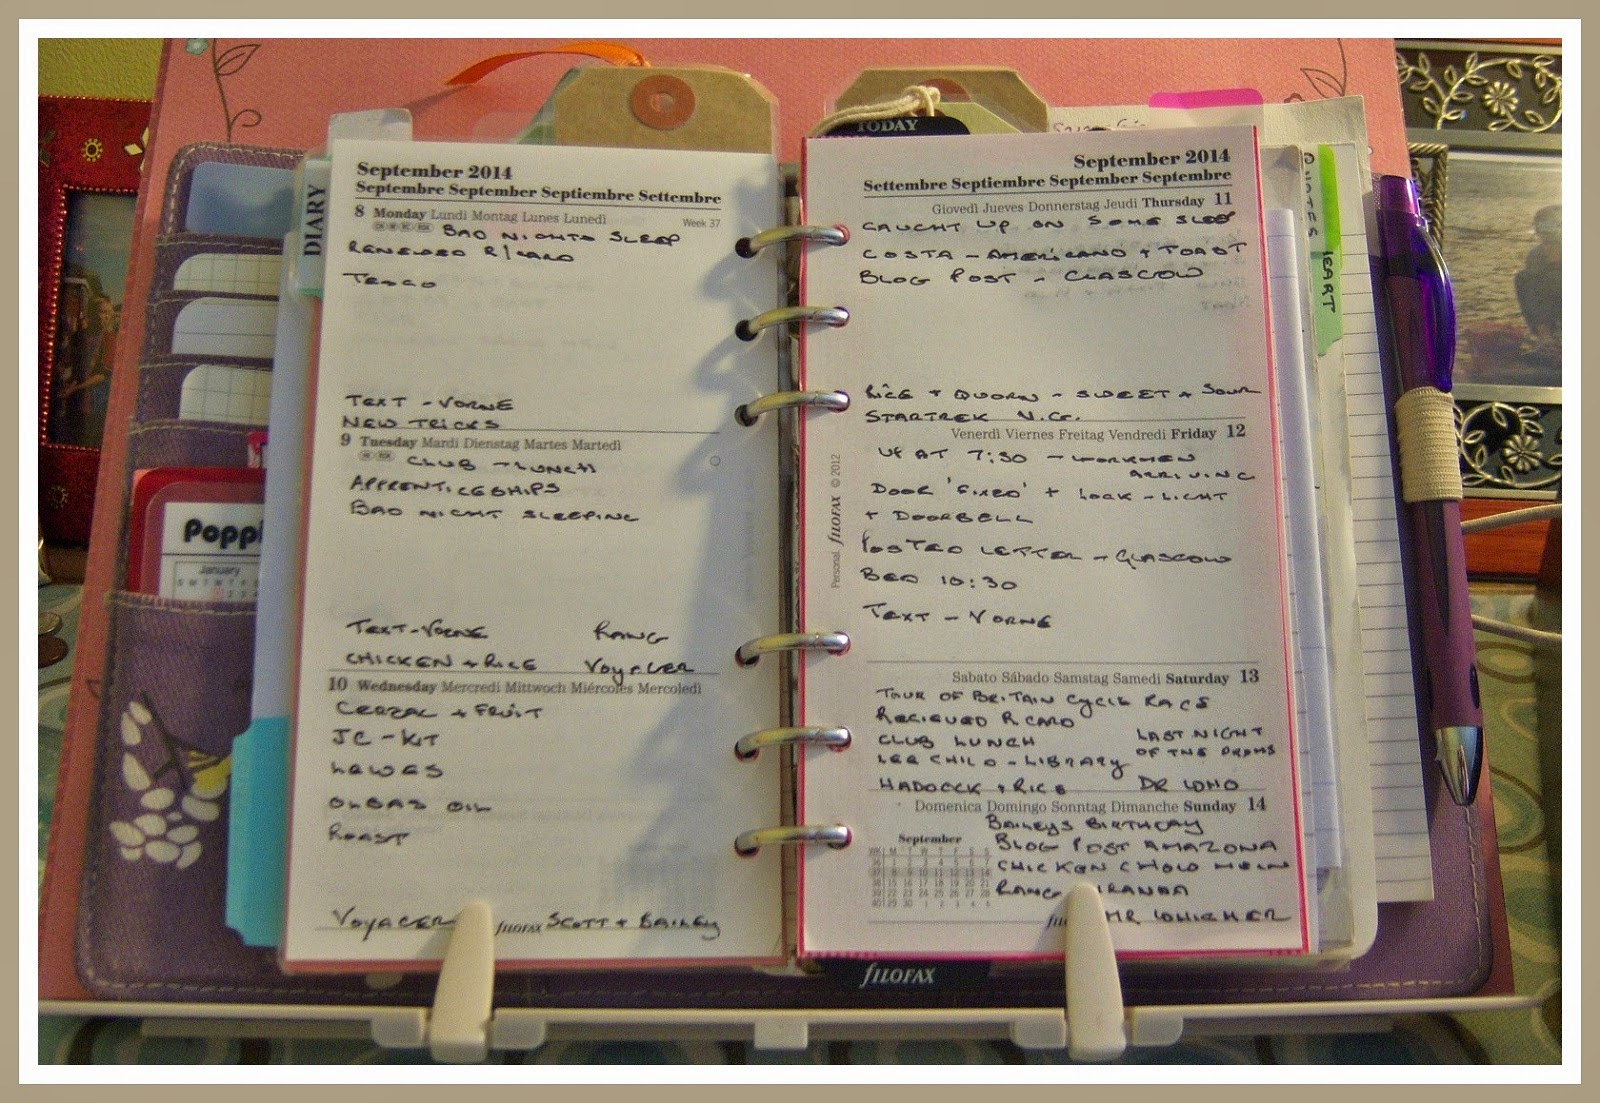 DIARY
September 2014
Septembre September Septiembre Settembre
8 Monday Lundi Montag Lunes Lunedì
Week 37
BAD NIGHTS SLEEP
RENEWED R/CARD
TESCO
TEXT - VORNE
NEW TRICKS
9 Tuesday Mardi Dienstag Martes Martedì
CLUB - LUNCH
APPRENTICESHIPS
BAD NIGHT SLEEPING
TEXT-VORNE RANG
CHICKEN + RICE VOYAGER
10 Wednesday Mercredi Mittwoch Miércoles Mercoledì
CEREAL + FRUIT
JC - KIT
OLBAS OIL
ROAST
VOYAGER filofax SCOTT + BAILEY
Poppi
January
S M T W T F S
TODAY
September 2014
Settembre Septiembre September Septembre
Giovedì Jueves Donnerstag Jeudi Thursday 11
CAUGHT UP ON SOME SLEEP
COSTA - AMERICANO + TOAST
BLOG POST - GLASGOW
RICE + QUORN - SWEET + SOUR
STARTREK N.G.
Venerdì Viernes Freitag Vendredi Friday 12
UP AT 7:30 - WORKMEN
ARRIVING
DOOR 'FIXED' + LOCK - LIGHT
+ DOORBELL
POSTED LETTER - GLASGOW
BED 10:30
TEXT - VORNE
Personal filofax © 2012
Sabato Sábado Samstag Samedi Saturday 13
TOUR OF BRITAIN CYCLE RACE
RECIEVED R.CARD
CLUB LUNCH
LAST NIGHT
OF THE PROMS
LEE CHILD - LIBRARY
HADOCK + RICE DR WHO
Domenica Domingo Sonntag Dimanche Sunday 14
BAILEYS BIRTHDAY
BLOG POST AMAZONA
CHICKEN CHOW MEIN
RANG
MR WHICHER
September
WK M T W T F S S
36 1 2 3 4 5 6 7
37 8 9 10 11 12 13 14
38 15 16 17 18 19 20 21
39 22 23 24 25 26 27 28
40 29 30 1 2 3 4 5
filofax
NOTES
HEART